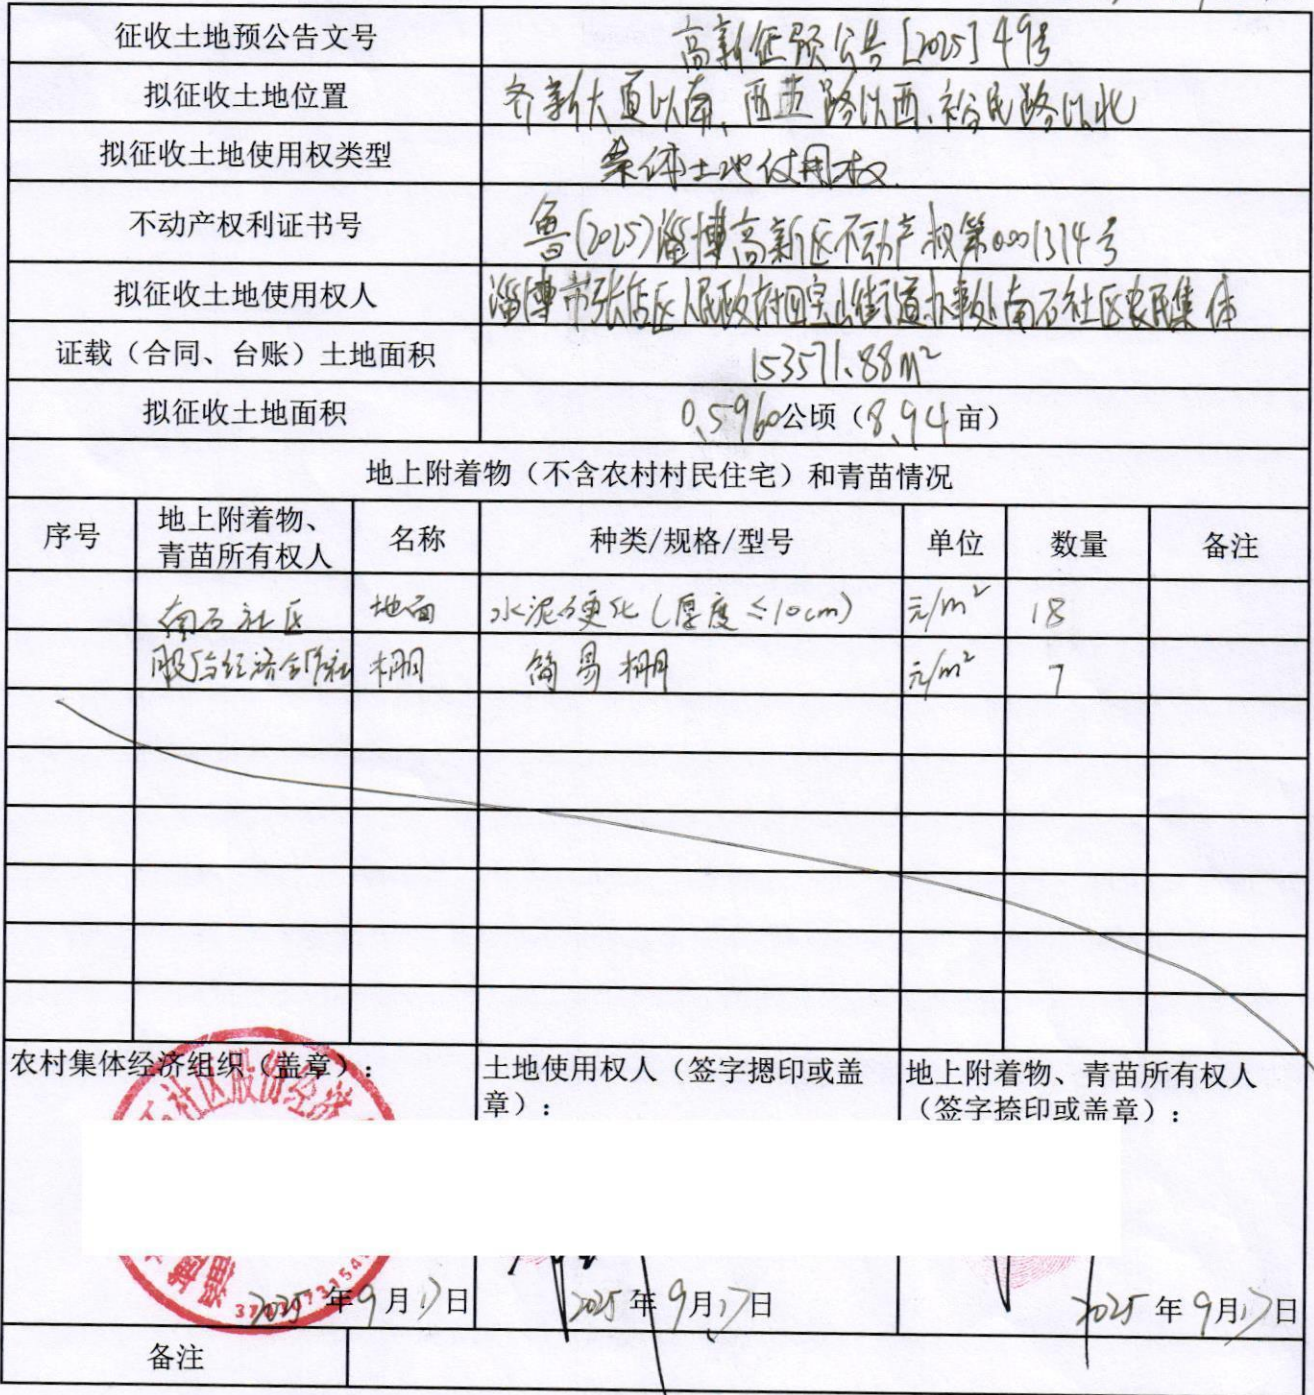 征收土地预公告文号 高新征预公告[2025]49号
拟征收土地位置 齐新大道以南、西五路以西、裕民路以北
拟征收土地使用权类型 集体土地使用权
不动产权利证书号 鲁(2025)淄博高新区不动产权第0001314号
拟征收土地使用权人 淄博市张店区人民政府四宝山街道办事处南石社区农民集体
证载（合同、台账）土地面积 153571.88m²
拟征收土地面积 0.5960公顷（8.94亩）
地上附着物（不含农村村民住宅）和青苗情况
序号 地上附着物、 名称 种类/规格/型号 单位 数量 备注
青苗所有权人
南石社区 地面 水泥硬化(厚度≤10cm) 元/m² 18
股份经济合作社 棚 简易棚 元/m² 7
农村集体经济组织（盖章）： 土地使用权人（签字摁印或盖 地上附着物、青苗所有权人
章）： （签字捺印或盖章）：
石社区股份经济
淄博
2025年9月17日 2025年9月17日 2025年9月17日
备注